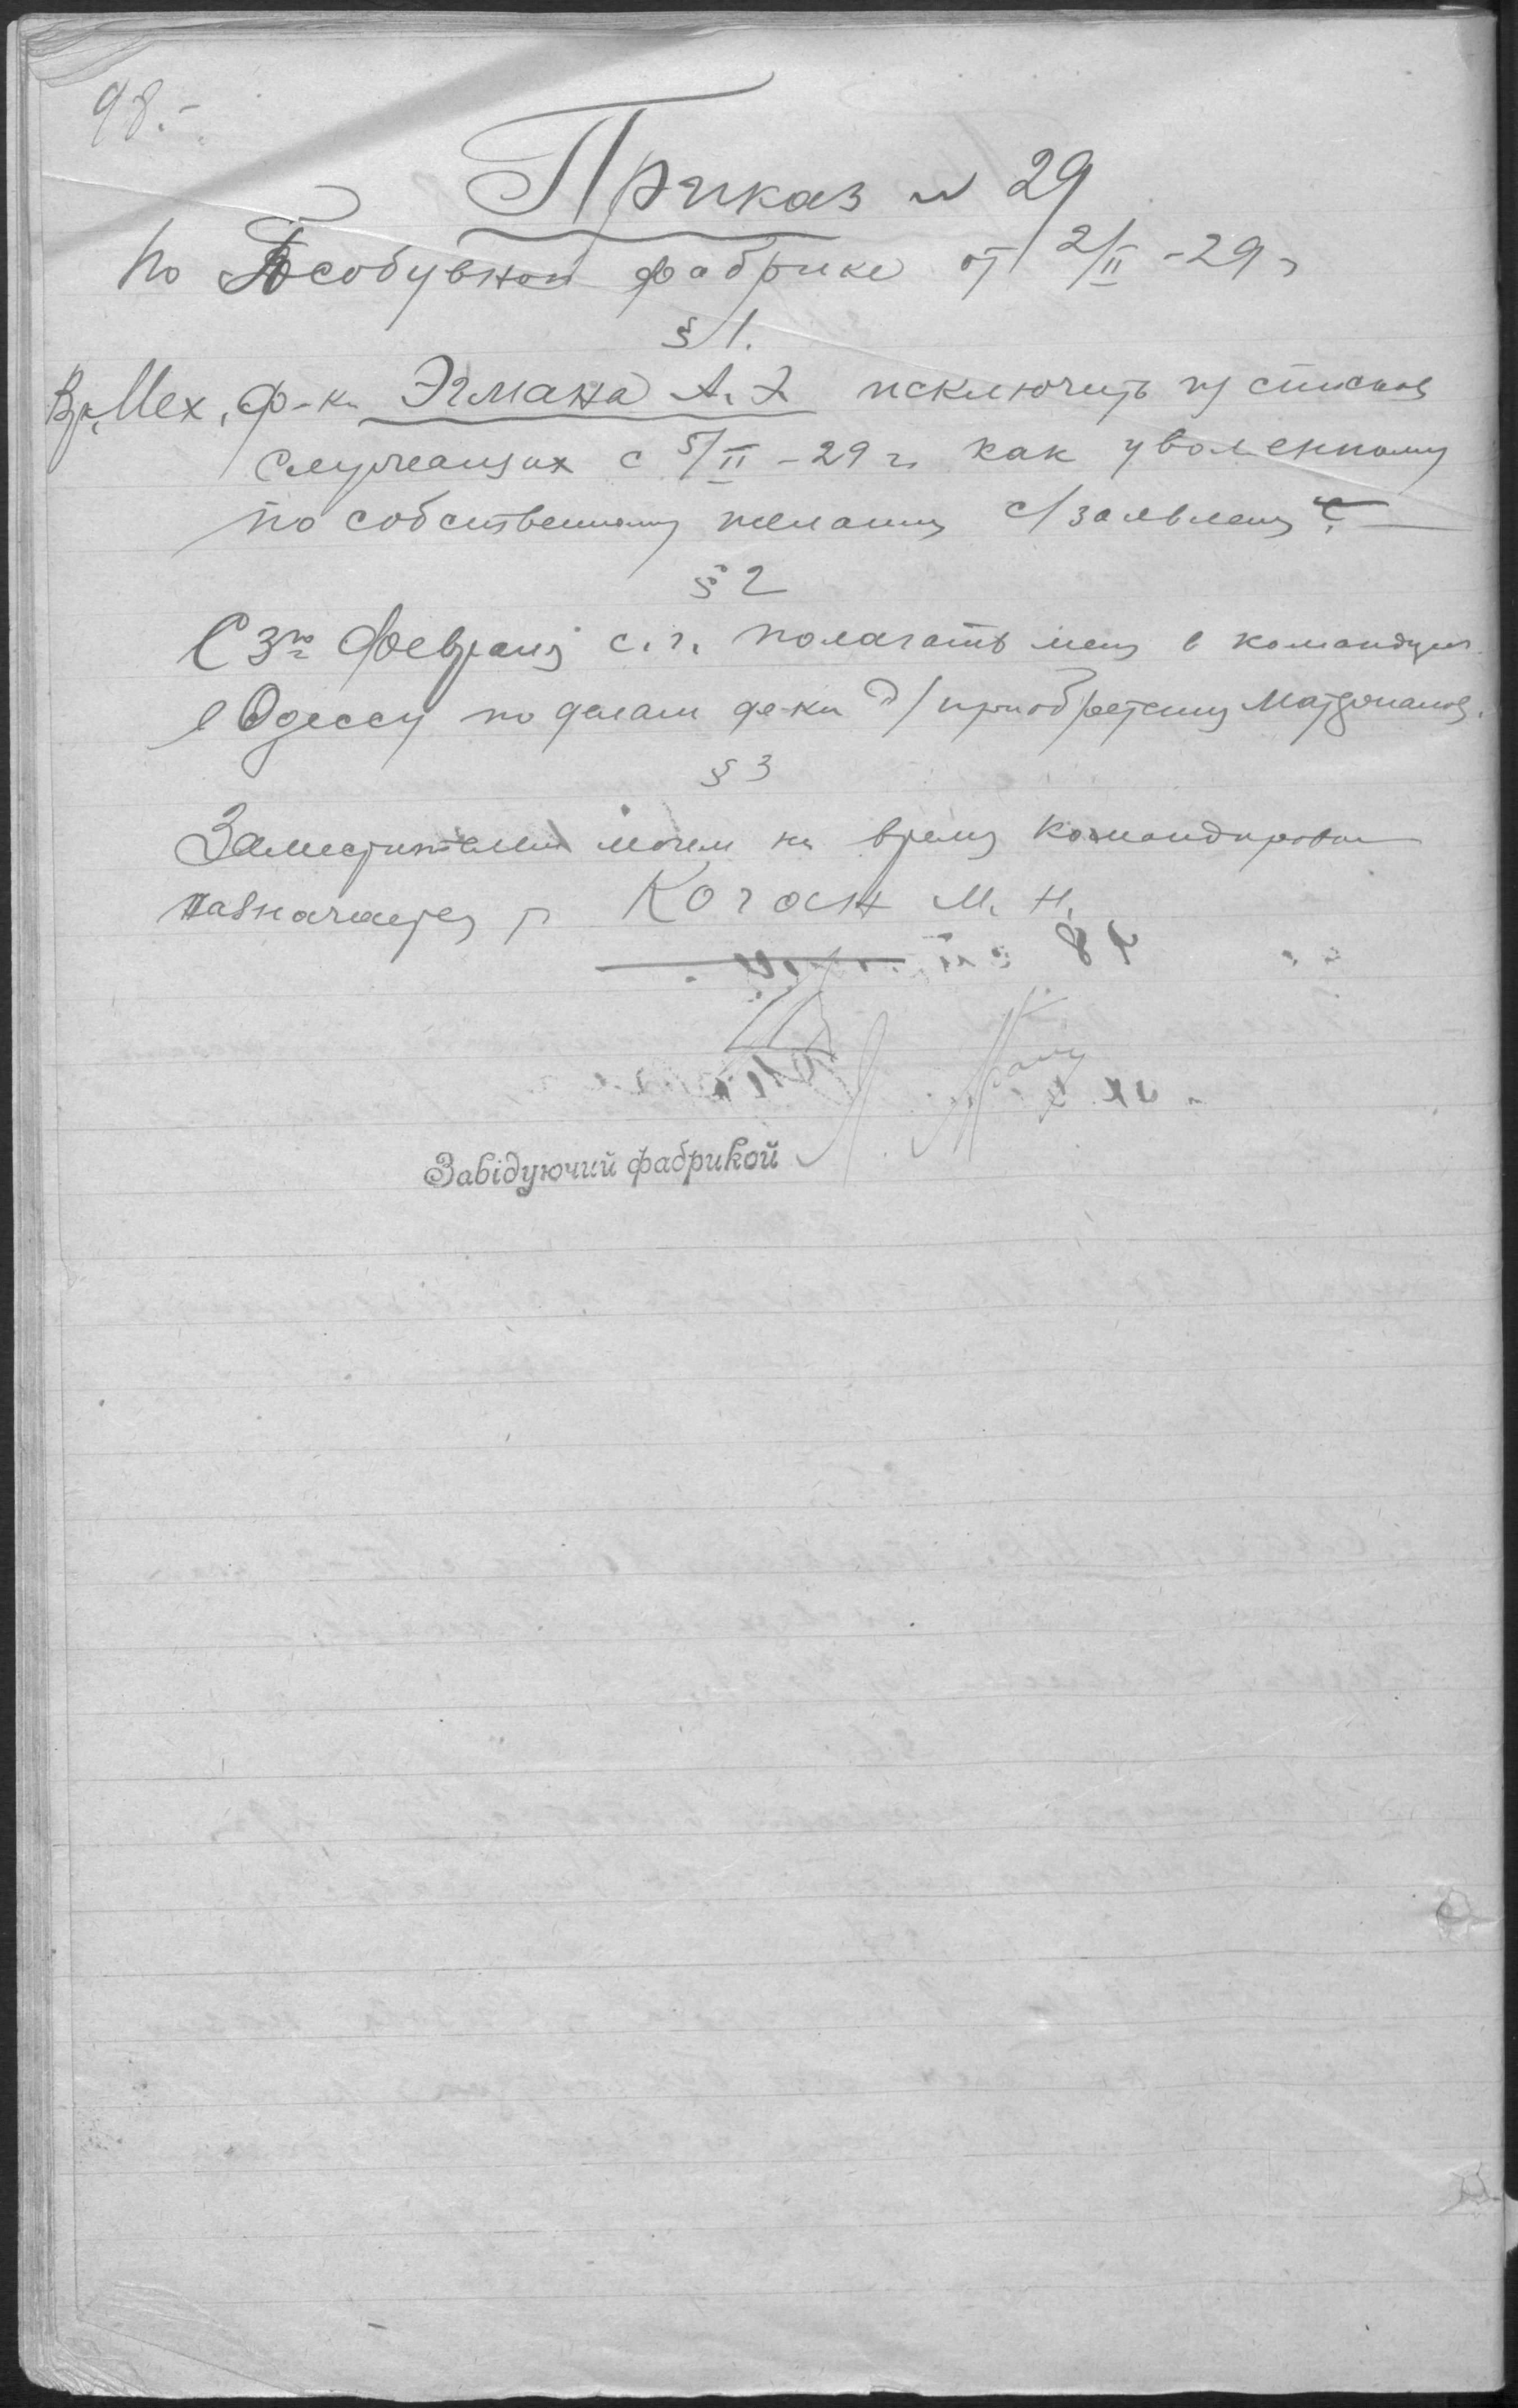 98.-
Приказ № 29
По Гособувной фабрике от 2/II -29 г
§ 1.
Вр. Мех. ф-ки Эгмана А. Э. исключить из списков
служащих с 5/II -29 г. как уволенному
по собственному желанию с/заявлению
§ 2
С 3го февраля с.г. полагать меня в командировке
в Одессу по делам ф-ки д/приобретения материалов.
§ 3
Заместителем моим на время командировки
назначается т. Коган М. Н.
Завідуючий фабрикой